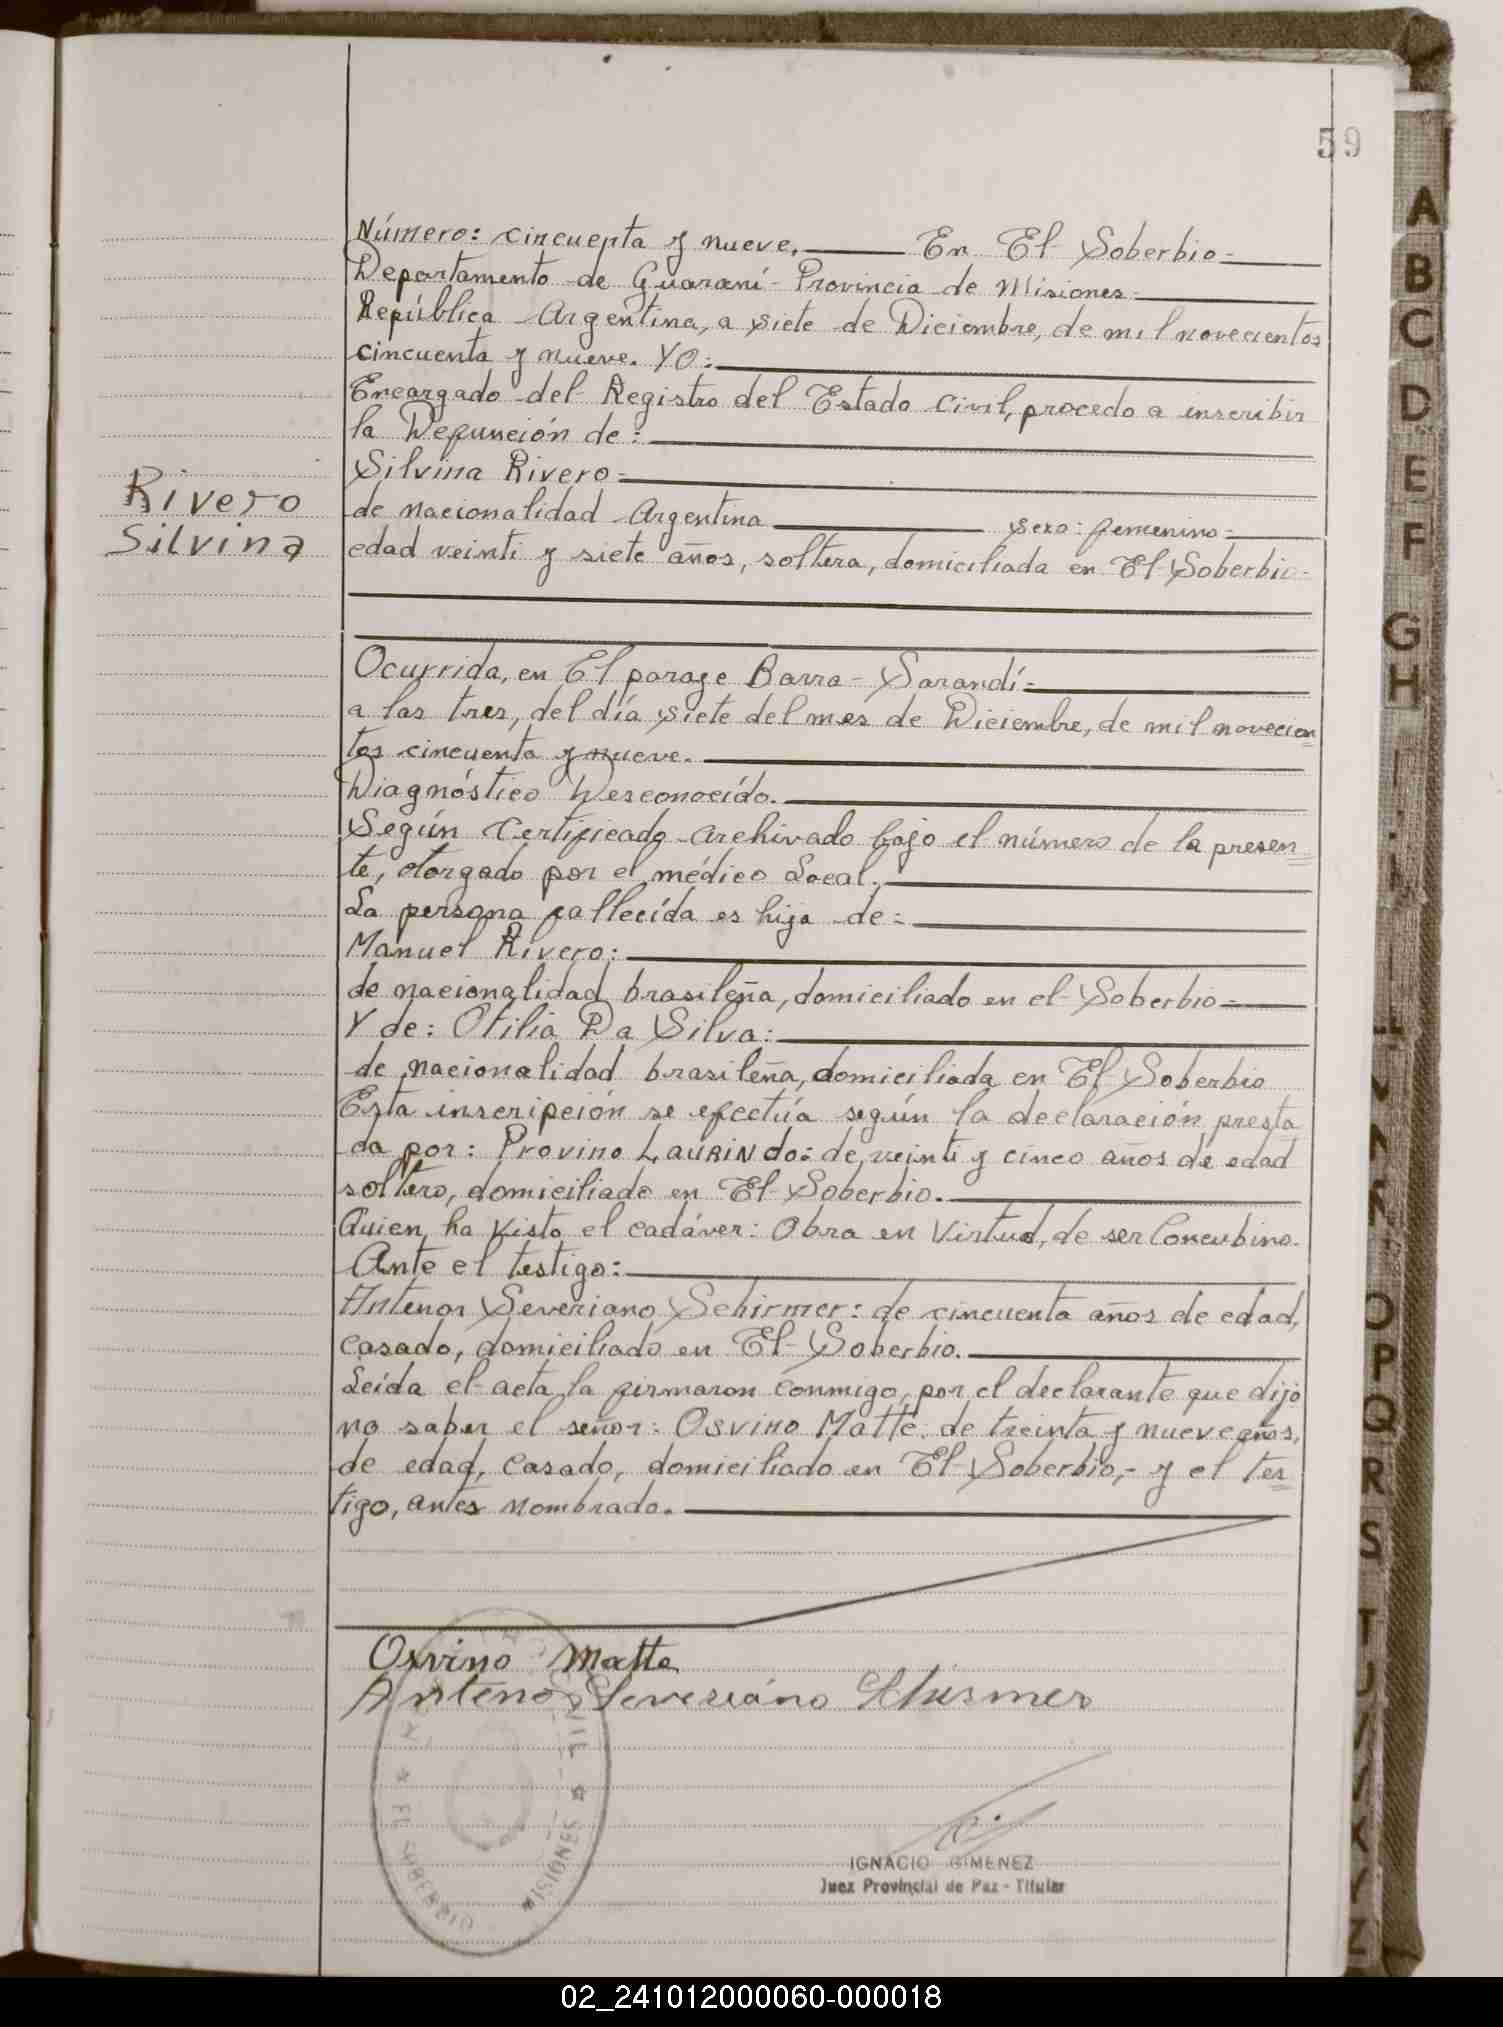 59
Número: cincuenta y nueve. En El Soberbio-
Departamento de Guaraní- Provincia de Misiones-
República Argentina, a siete de Diciembre, de mil novecientos
cincuenta y nueve. YO:
Encargado del Registro del Estado Civil, procedo a inscribir
la Defunción de:
Silvina Rivero=
Rivero
Silvina
de nacionalidad Argentina sexo: femenino=
edad veinti y siete años, soltera, domiciliada en El Soberbio-
Ocurrida, en El paraje Barra-Sarandí=
a las tres, del día siete del mes de Diciembre, de mil novecien=
tos cincuenta y nueve.
Diagnóstico Desconocído.
Según Certificado Archivado bajo el número de la presen=
te, otorgado por el médico Local.
La persona fallecída es hija de=
Manuel Rivero:
de nacionalidad brasileña, domiciliado en el Soberbio=
Y de: Otilia Da Silva:
de nacionalidad brasileña, domiciliada en El Soberbio
Esta inscripción se efectúa según la declaración presta
da por: Provino LAURINdo: de veinti y cinco años de edad
soltero, domiciliado en El Soberbio.
Quien ha Visto el cadáver: Obra en Virtud, de ser Concubino.
Ante el testigo:
Antenor Severiano Schirmer: de cincuenta años de edad,
casado, domiciliado en El Soberbio.
Leída el acta, la firmaron conmigo, por el declarante que dijo
no saber el señor: Osvino Matte: de treinta y nueve años,
de edad, Casado, domiciliado en El Soberbio,- y el tes=
tigo, antes nombrado.
Osvino Matte
Antenor Severiano Schirmer
CIVIL ★ MISIONES ★ EL SOBERBIO ★
IGNACIO GIMENEZ
Juez Provincial de Paz - Titular
A
B
C
D
E
F
G
H
O
P
Q
R
S
T
U
V
X
Z
02_241012000060-000018